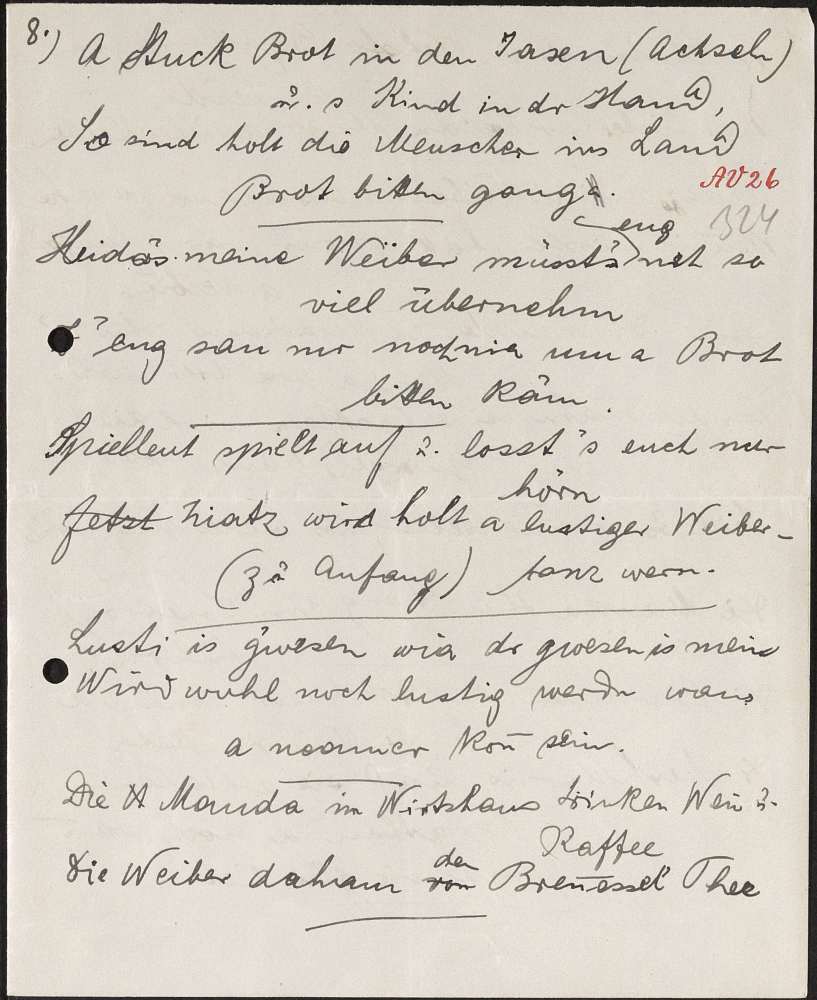 8.) A Stuck Brot in den Jaxen (Achseln)
u. s Kind in dr Hand,
So sind holt die Menscher ins Land
Brot bitten gonga.
AV26
324
eng
Heidas meine Weiber müsst's net so
viel übernehm
Z' eng san mr noch nia um a Brot
bitten käm.
Spielleut spielt auf u. losst's euch nur
hörn
Jetzt hiatz wird holt a lustiger Weiber-
(zu Anfang) tanz wern.
Lusti is g'wesen wia dr gwesen is mein
Wird wohl noch lustig werdn wans
a noamer kon sein.
Die Manda im Wirtshaus trinken Wein u.
Kaffee
Die Weiber daham von den Brenessel Thee